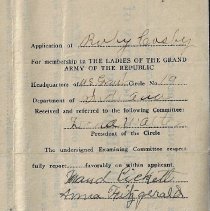 Application of Ruby
For membership in THE LADIES OF THE GRAND
ARMY OF THE REPUBLIC
Headquarters of Circle No. 19
Department of
Received and referred to the following Committee:
President of the Circle
The undersigned Examining Committee respect
fully report favorably on within applicant.
Maud Pickett
Anna Fitzgerald